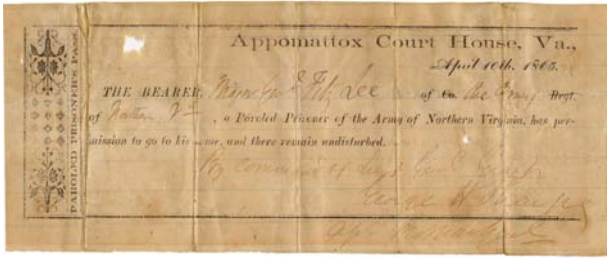 PAROLED PRISONER'S PASS.
Appomattox Court House, Va.,
April 10th, 1865.
THE BEARER, Major Gen'l Fitz Lee of Co. the Army Regt.
of Northern Va , a Paroled Prisoner of the Army of Northern Virginia, has per-
mission to go to his home, and there remain undisturbed.
By command of
George H. Sharpe